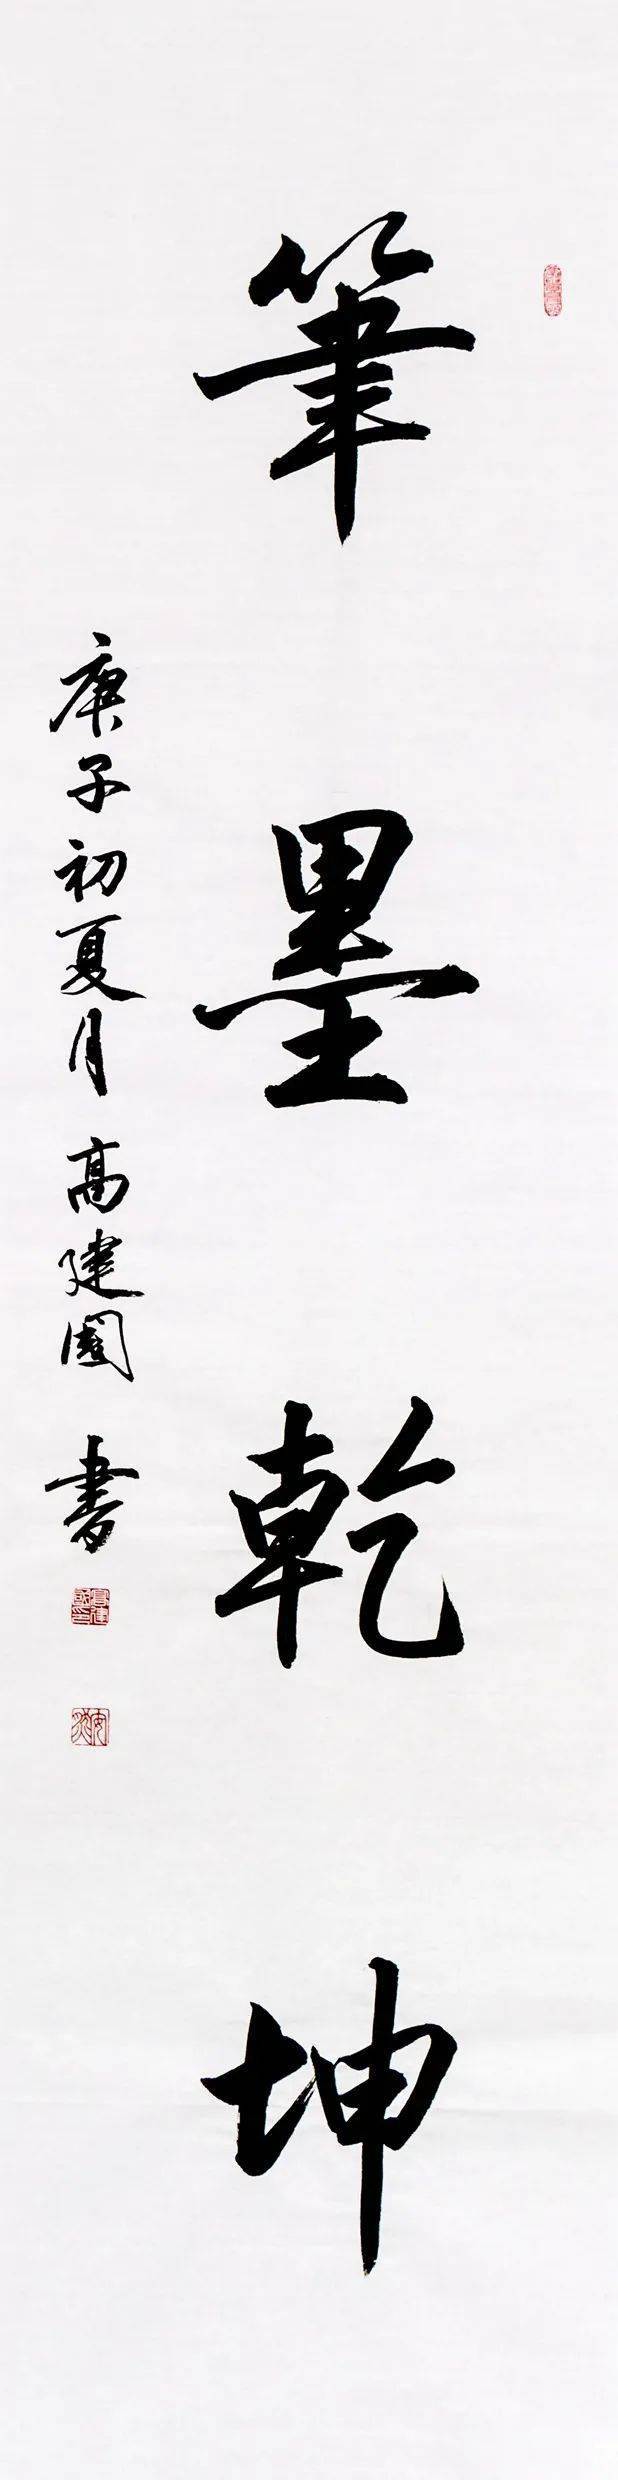 筆墨乾坤
庚子初夏月高建國書